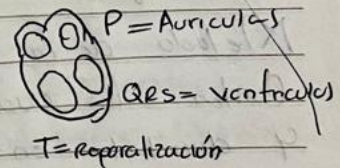 P = Auriculas
QRS = Ventriculos
T = reporalización